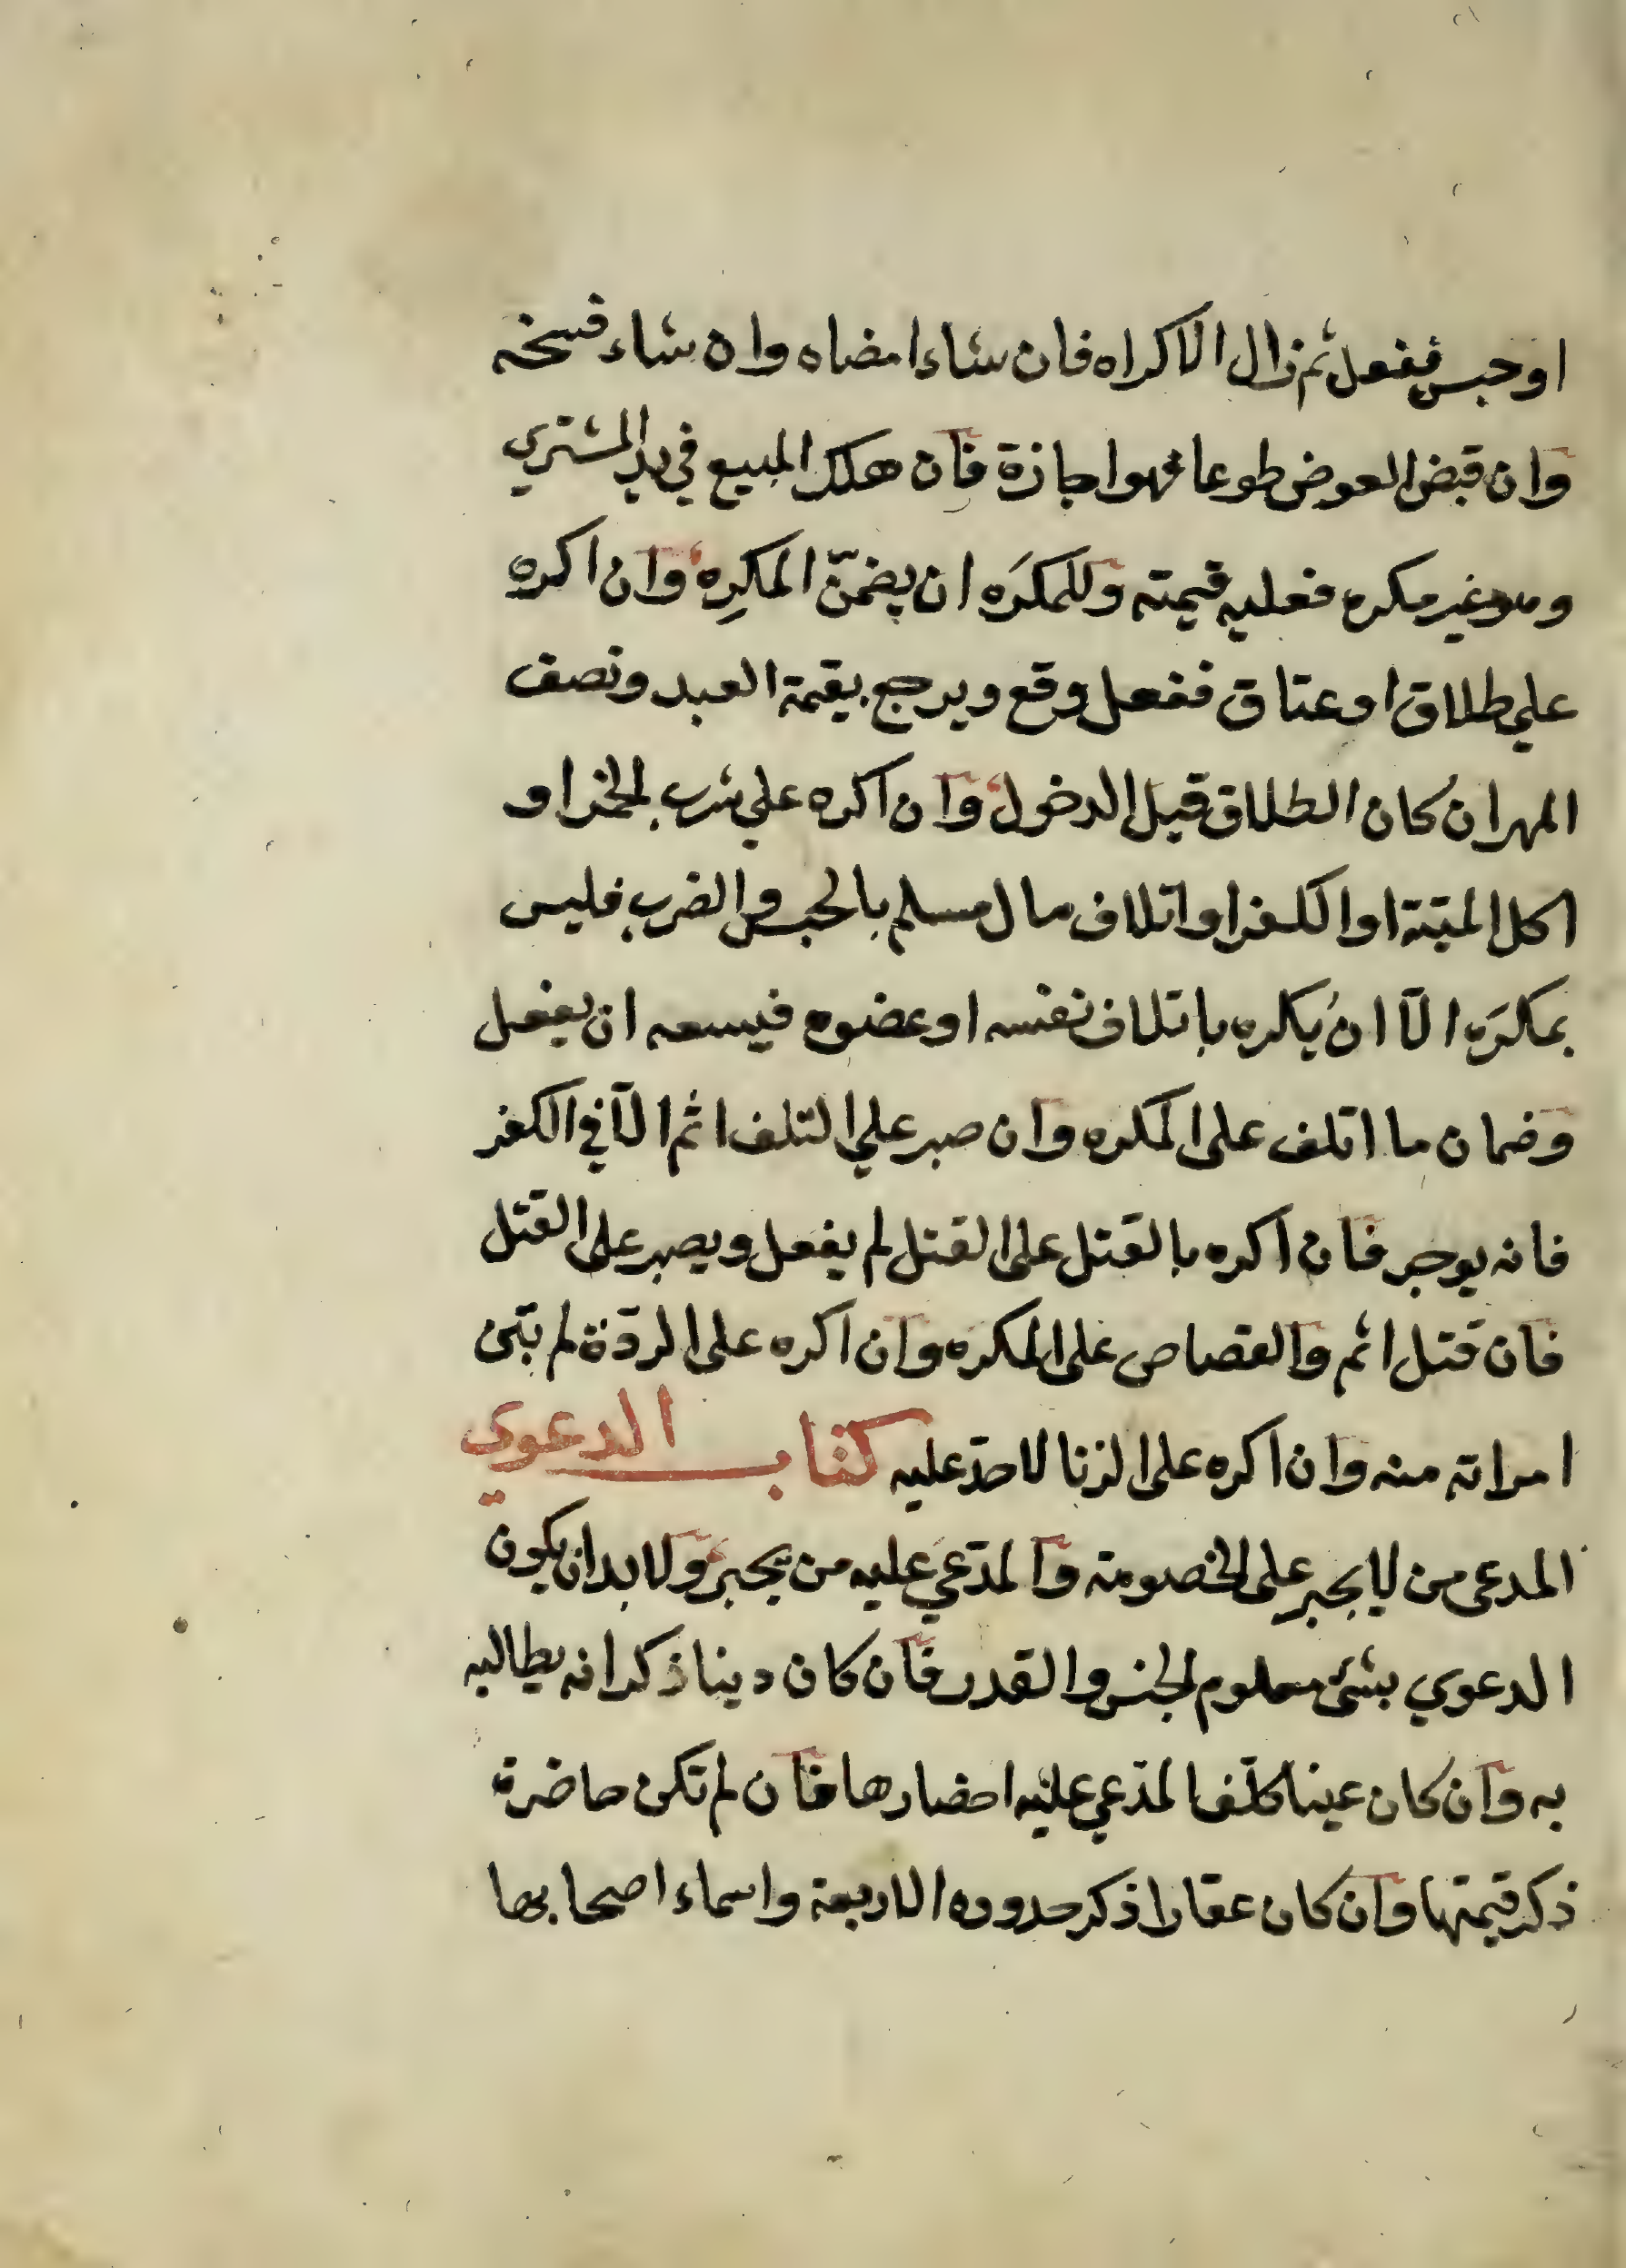 او حبس ففعل ثم زال الاكراه فان شاء امضاه وان شاء فسخه
وان قبض العوض طوعا فهو اجازة فان هلك المبيع في يد المشتري
وهو غير مكره فعليه قيمته وللمكرَه ان يضمنّ المكرِه وان اكره
علي طلاق او عتاق ففعل وقع ويرجع بقيمة العبد ونصف
المهر ان كان الطلاق قبل الدخول وان اكره علي شرب الخمر او
اكل الميتة او الكفر او اتلاف مال مسلم بالحبس والضرب فليس
بمكرَه الّا ان يُكره باتلاف نفسه او عضوه فيسعه ان يفعل
وضمان ما اتلف على المكره وان صبر علي التلف اثم الّا في الكفر
فانه يوجر فان اكره بالقتل على القتل لم يفعل ويصبر على القتل
فان قتل اثم والقصاص على المكره وان اكره على الردّة لم تبن
امراته منه وان اكره على الزنا لا حدّ عليه كتاب الدعوي
المدعى من لا يجبر على الخصومة والمدّعي عليه من يجبر ولا بد ان يكون
الدعوي بشئ معلوم الجنس والقدر فان كان دينا ذكر انه يطالبه
به وان كان عينا كلّف المدّعي عليه احضارها فان لم تكن حاضرة
ذكر قيمتها وان كان عقارا ذكر حدوده الاربعة واسماء اصحابها